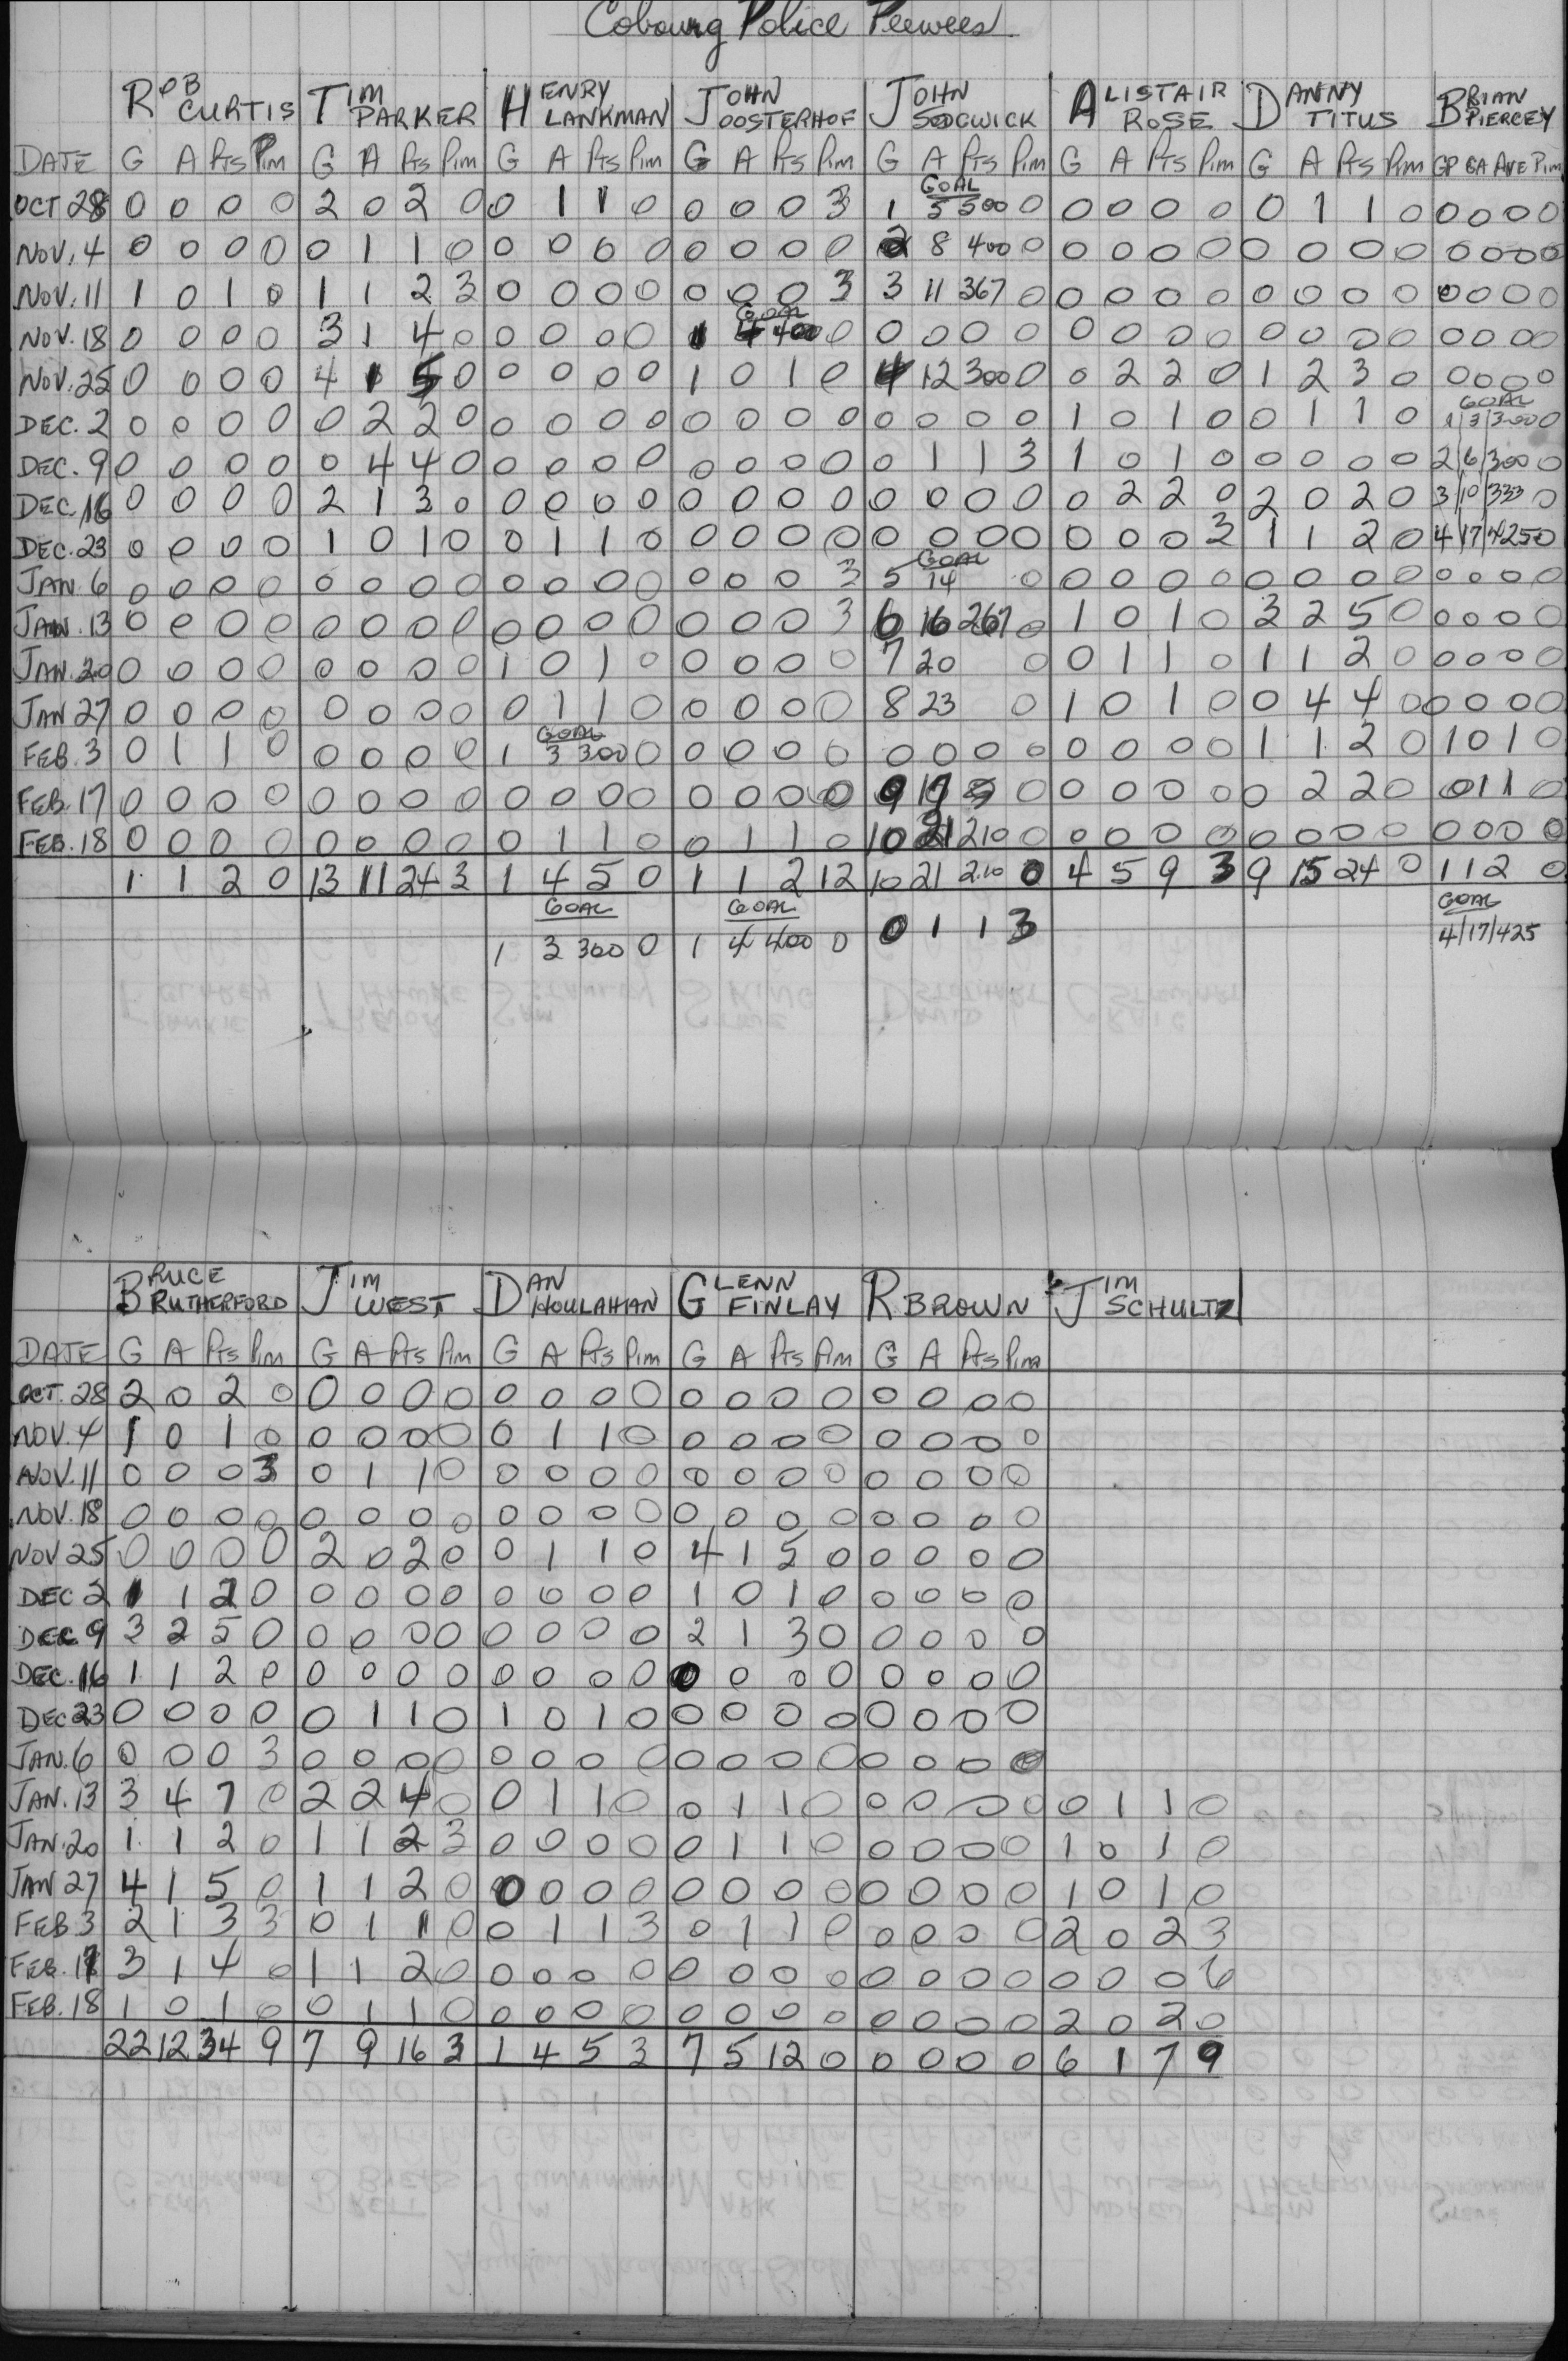 Cobourg Police Peewees
ROB CURTIS TIM PARKER HENRY LANKMAN JOHN OOSTERHOF JOHN SODGWICK ALISTAIR ROSE DANNY TITUS BRIAN PIERCEY
DATE G A Pts Pim G A Pts Pim G A Pts Pim G A Pts Pim G A Pts Pim G A Pts Pim G A Pts Pim GP GA AVE Pim
GOAL
OCT 28 0 0 0 0 2 0 2 0 0 1 1 0 0 0 0 3 1 5 500 0 0 0 0 0 0 1 1 0 0 0 0 0
NOV. 4 0 0 0 0 0 1 1 0 0 0 0 0 0 0 0 0 2 8 400 0 0 0 0 0 0 0 0 0 0 0 0 0
NOV. 11 1 0 1 0 1 1 2 3 0 0 0 0 0 0 0 3 3 11 367 0 0 0 0 0 0 0 0 0 0 0 0 0
GOAL
NOV. 18 0 0 0 0 3 1 4 0 0 0 0 0 1 4 400 0 0 0 0 0 0 0 0 0 0 0 0 0 0 0 0 0
NOV. 25 0 0 0 0 4 1 5 0 0 0 0 0 1 0 1 0 4 12 300 0 0 2 2 0 1 2 3 0 0 0 0 0
GOAL
DEC. 2 0 0 0 0 0 2 2 0 0 0 0 0 0 0 0 0 0 0 0 0 1 0 1 0 0 1 1 0 1 3 300 0
DEC. 9 0 0 0 0 0 4 4 0 0 0 0 0 0 0 0 0 0 1 1 3 1 0 1 0 0 0 0 0 2 6 300 0
DEC. 16 0 0 0 0 2 1 3 0 0 0 0 0 0 0 0 0 0 0 0 0 0 2 2 0 2 0 2 0 3 10 333 0
DEC. 23 0 0 0 0 1 0 1 0 0 1 1 0 0 0 0 0 0 0 0 0 0 0 0 3 1 1 2 0 4 17 425 0
GOAL
JAN. 6 0 0 0 0 0 0 0 0 0 0 0 0 0 0 0 3 5 14 0 0 0 0 0 0 0 0 0 0 0 0 0
JAN. 13 0 0 0 0 0 0 0 0 0 0 0 0 0 0 0 3 6 16 267 0 1 0 1 0 3 2 5 0 0 0 0 0
JAN. 20 0 0 0 0 0 0 0 0 1 0 1 0 0 0 0 0 7 20 0 0 1 1 0 1 1 2 0 0 0 0 0
JAN 27 0 0 0 0 0 0 0 0 0 1 1 0 0 0 0 0 8 23 0 1 0 1 0 0 4 4 0 0 0 0 0
GOAL
FEB. 3 0 1 1 0 0 0 0 0 1 3 300 0 0 0 0 0 0 0 0 0 0 0 0 0 1 1 2 0 1 0 1 0
FEB. 17 0 0 0 0 0 0 0 0 0 0 0 0 0 0 0 0 9 0 0 0 0 0 0 2 2 0 0 1 1 0
FEB. 18 0 0 0 0 0 0 0 0 0 1 1 0 0 1 1 0 10 21 210 0 0 0 0 0 0 0 0 0 0 0 0 0
1 1 2 0 13 11 24 3 1 4 5 0 1 1 2 12 10 21 210 0 4 5 9 3 9 15 24 0 1 1 2 0
GOAL GOAL GOAL
1 3 300 0 1 4 400 0 0 1 1 3 4/17/425
BRUCE RUTHERFORD JIM WEST DAN HOULAHAN GLENN FINLAY R BROWN JIM SCHULTZ
DATE G A Pts Pim G A Pts Pim G A Pts Pim G A Pts Pim G A Pts Pim
OCT. 28 2 0 2 0 0 0 0 0 0 0 0 0 0 0 0 0 0 0 0 0
NOV. 4 1 0 1 0 0 0 0 0 0 1 1 0 0 0 0 0 0 0 0 0
NOV. 11 0 0 0 3 0 1 1 0 0 0 0 0 0 0 0 0 0 0 0 0
NOV. 18 0 0 0 0 0 0 0 0 0 0 0 0 0 0 0 0 0 0 0 0
NOV 25 0 0 0 0 2 0 2 0 0 1 1 0 4 1 5 0 0 0 0 0
DEC 2 1 1 2 0 0 0 0 0 0 0 0 0 1 0 1 0 0 0 0 0
DEC 9 3 2 5 0 0 0 0 0 0 0 0 0 2 1 3 0 0 0 0 0
DEC. 16 1 1 2 0 0 0 0 0 0 0 0 0 0 0 0 0 0 0 0 0
DEC 23 0 0 0 0 0 1 1 0 1 0 1 0 0 0 0 0 0 0 0 0
JAN. 6 0 0 0 3 0 0 0 0 0 0 0 0 0 0 0 0 0 0 0 0
JAN. 13 3 4 7 0 2 2 4 0 0 1 1 0 0 1 1 0 0 0 0 0 0 1 1 0
JAN. 20 1 1 2 0 1 1 2 3 0 0 0 0 0 1 1 0 0 0 0 0 1 0 1 0
JAN 27 4 1 5 0 1 1 2 0 0 0 0 0 0 0 0 0 0 0 0 0 1 0 1 0
FEB 3 2 1 3 3 0 1 1 0 0 1 1 3 0 1 1 0 0 0 0 0 2 0 2 3
FEB. 17 3 1 4 0 1 1 2 0 0 0 0 0 0 0 0 0 0 0 0 0 0 0 0 6
FEB. 18 1 0 1 0 0 1 1 0 0 0 0 0 0 0 0 0 0 0 0 0 2 0 2 0
22 12 34 9 7 9 16 3 1 4 5 3 7 5 12 0 0 0 0 0 6 1 7 9